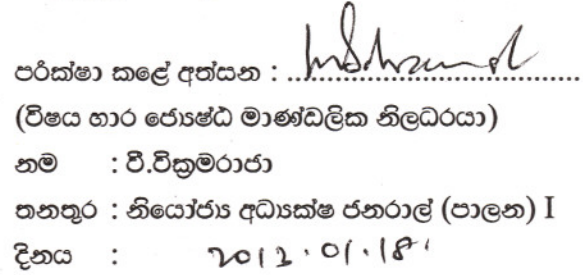 පරික්ෂා කළේ අත්සන : ..................................
(විෂය භාර ජ්‍යෙෂ්ඨ මාණ්ඩලික නිලධරයා)
නම : වී.වික්‍රමරාජා
තනතුර : නියෝජ්‍ය අධ්‍යක්ෂ ජනරාල් (පාලන) I
දිනය : 2012.01.18